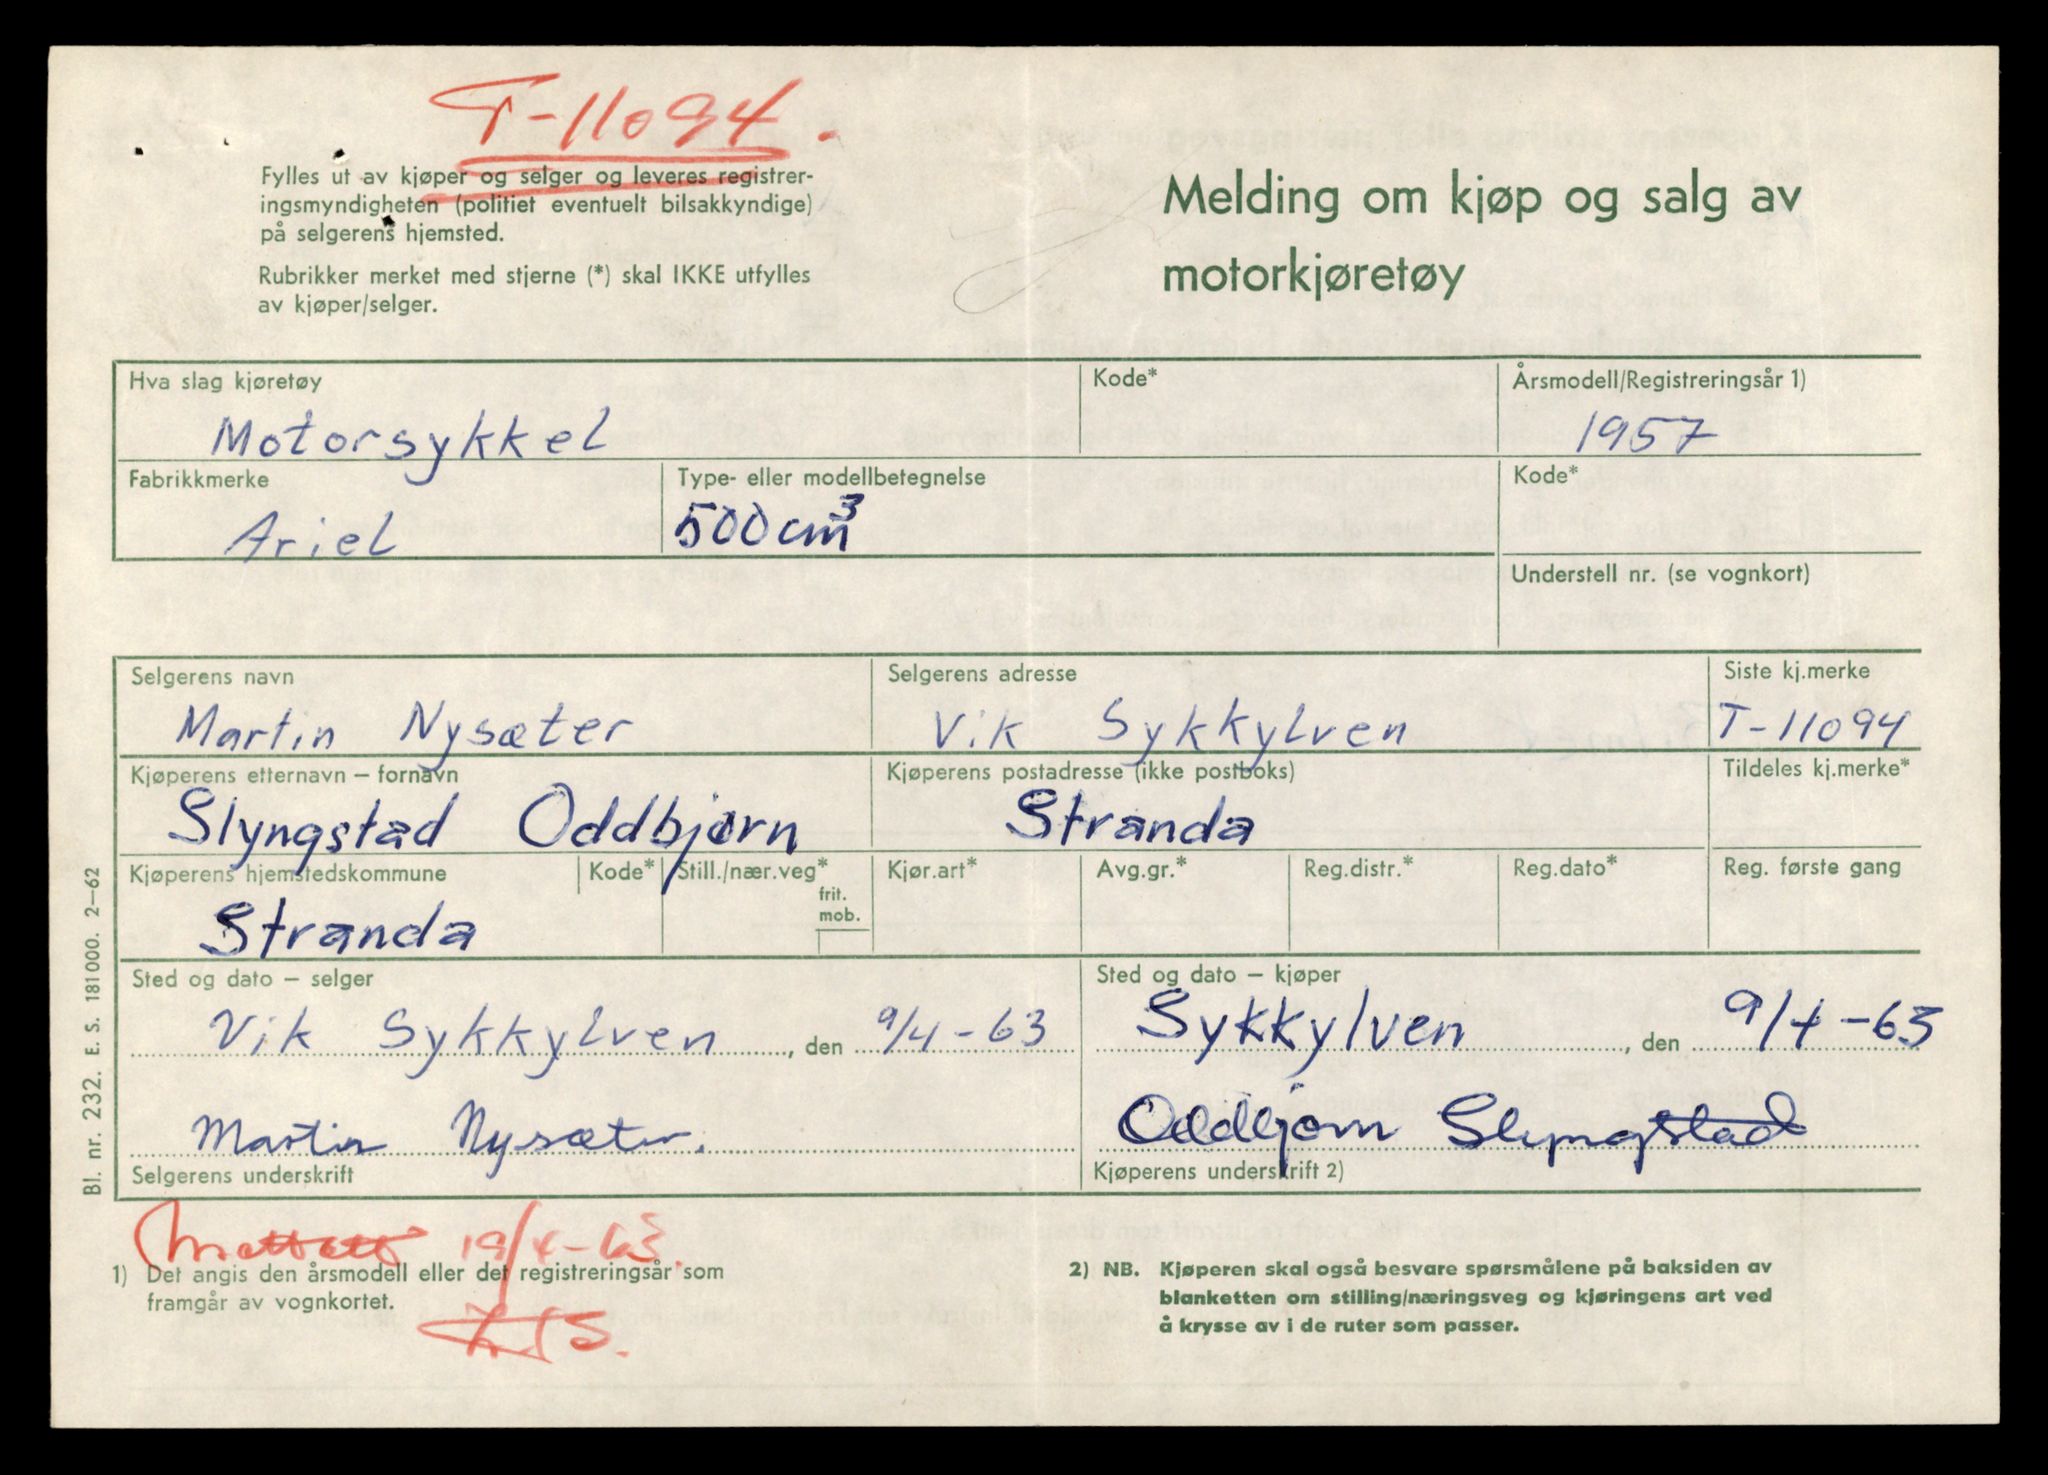 T-11094.
Fylles ut av kjøper og selger og leveres registrer-
ingsmyndigheten (politiet eventuelt bilsakkyndige)
på selgerens hjemsted.
Rubrikker merket med stjerne (*) skal IKKE utfylles
av kjøper/selger.
Melding om kjøp og salg av
motorkjøretøy
Hva slag kjøretøy
Motorsykkel
Kode*
Årsmodell/Registreringsår 1)
1957
Fabrikkmerke
Ariel
Type- eller modellbetegnelse
500 cm³
Kode*
Understell nr. (se vognkort)
Selgerens navn
Martin Nysæter
Selgerens adresse
Vik Sykkylven
Siste kj.merke
T-11094
Kjøperens etternavn – fornavn
Slyngstad Oddbjørn
Kjøperens postadresse (ikke postboks)
Stranda
Tildeles kj.merke*
Kjøperens hjemstedskommune
Stranda
Kode*
Still./nær.veg*
frit.
mob.
Kjør.art*
Avg.gr.*
Reg.distr.*
Reg.dato*
Reg. første gang
Sted og dato – selger
Vik Sykkylven, den 9/4-63
Sted og dato – kjøper
Sykkylven, den 9/4-63
Martin Nysæter.
Selgerens underskrift
Oddbjørn Slyngstad
Kjøperens underskrift 2)
Bl. nr. 232. E. S. 181000. 2–62
Mottatt 19/4-63.
1) Det angis den årsmodell eller det registreringsår som
framgår av vognkortet.
2) NB. Kjøperen skal også besvare spørsmålene på baksiden av
blanketten om stilling/næringsveg og kjøringens art ved
å krysse av i de ruter som passer.